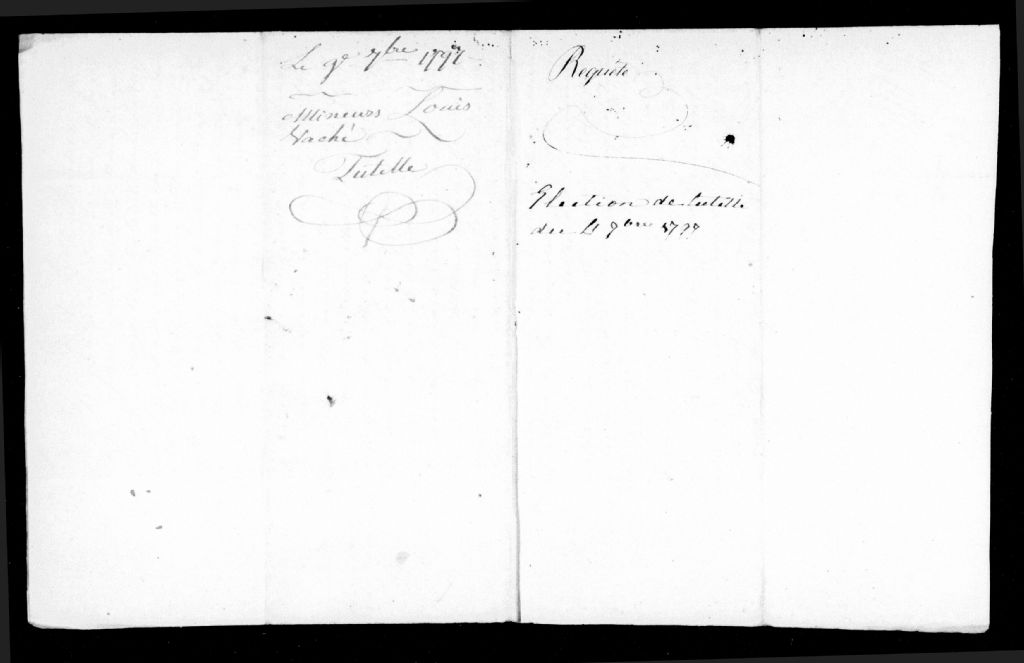 Le 9e 7bre 1797
Mineurs Louis
Vaché
Tutelle
Requête
Election de tutelle
du 4 9bre 1797